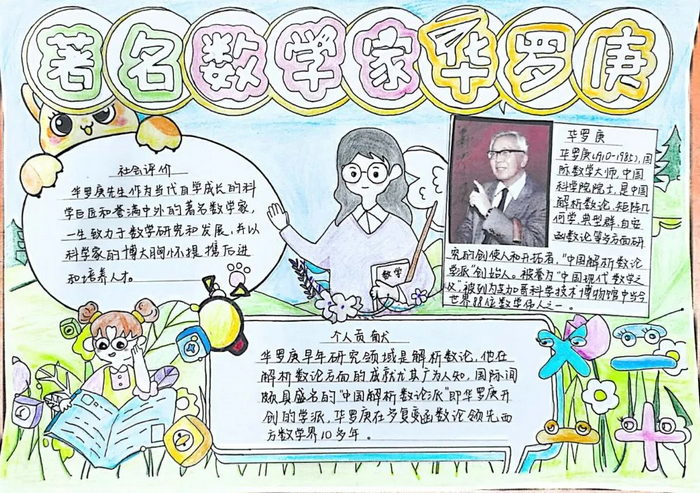 著名数学家华罗庚
社会评价
华罗庚先生作为当代自学成长的科
学巨匠和誉满中外的著名数学家，
一生致力于数学研究和发展，并以
科学家的博大胸怀提携后进
和培养人才。
数学
华罗庚
华罗庚(1910-1985)，国
际数学大师，中国
科学院院士，是中国
解析数论、矩阵几
何学、典型群、自安
函数论等多方面研
究的创始人和开拓者，“中国解析数论
学派”创始人。被誉为“中国现代数学之
父”被列为芝加哥科学技术博物馆中当今
世界88位数学伟人之一。
个人贡献
华罗庚早年研究领域是解析数论，他在
解析数论方面的成就尤其广为人知，国际间
颇具盛名的“中国解析数论派”即华罗庚开
创的学派，华罗庚在多复变函数论领先西
方数学界10多年。